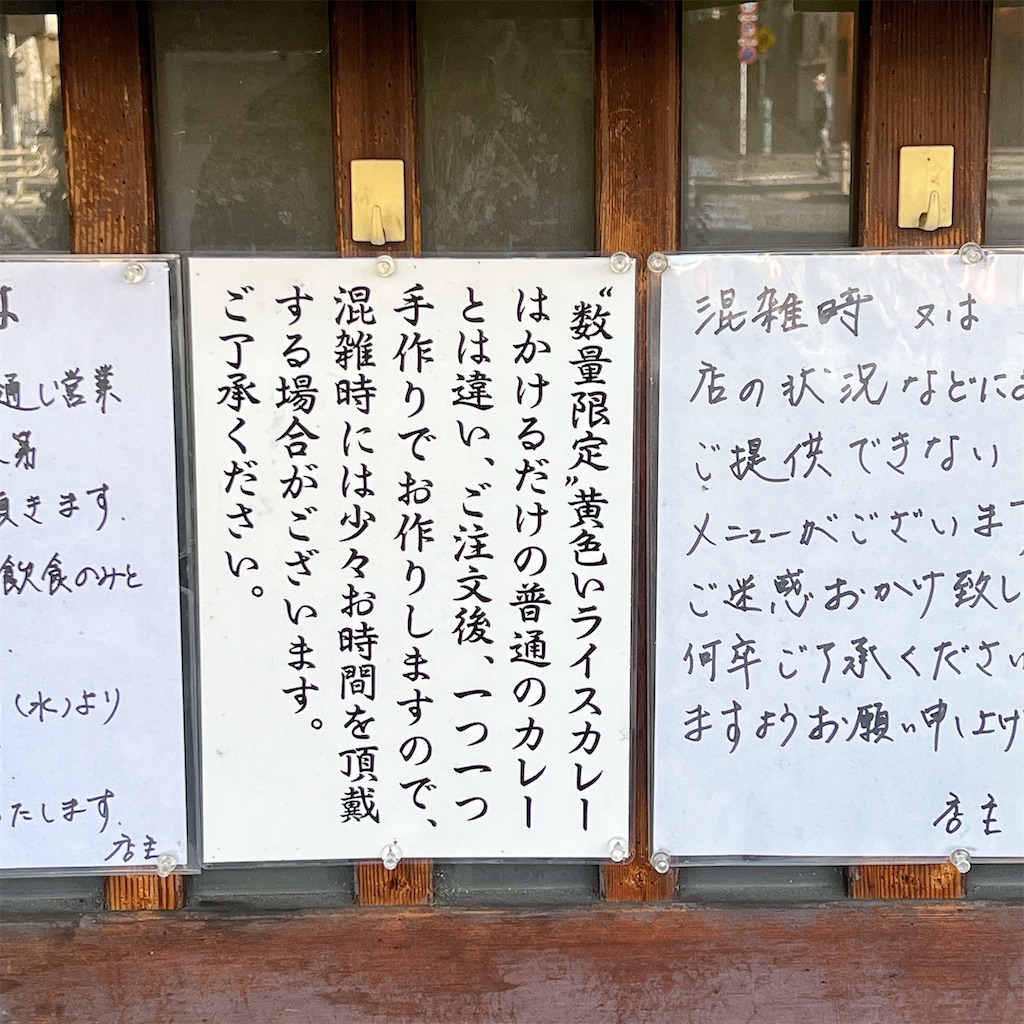 通し営業
きます.
飲食のみと
(水)より
たします.
店主
“数量限定”黄色いライスカレー
はかけるだけの普通のカレー
とは違い、ご注文後、一つ一つ
手作りでお作りしますので、
混雑時には少々お時間を頂戴
する場合がございます。
ご了承ください。
混雑時 又は
店の状況などに
ご提供できない
メニューがございます
ご迷惑おかけ致し
何卒ご了承ください
ますようお願い申し上げ
店主